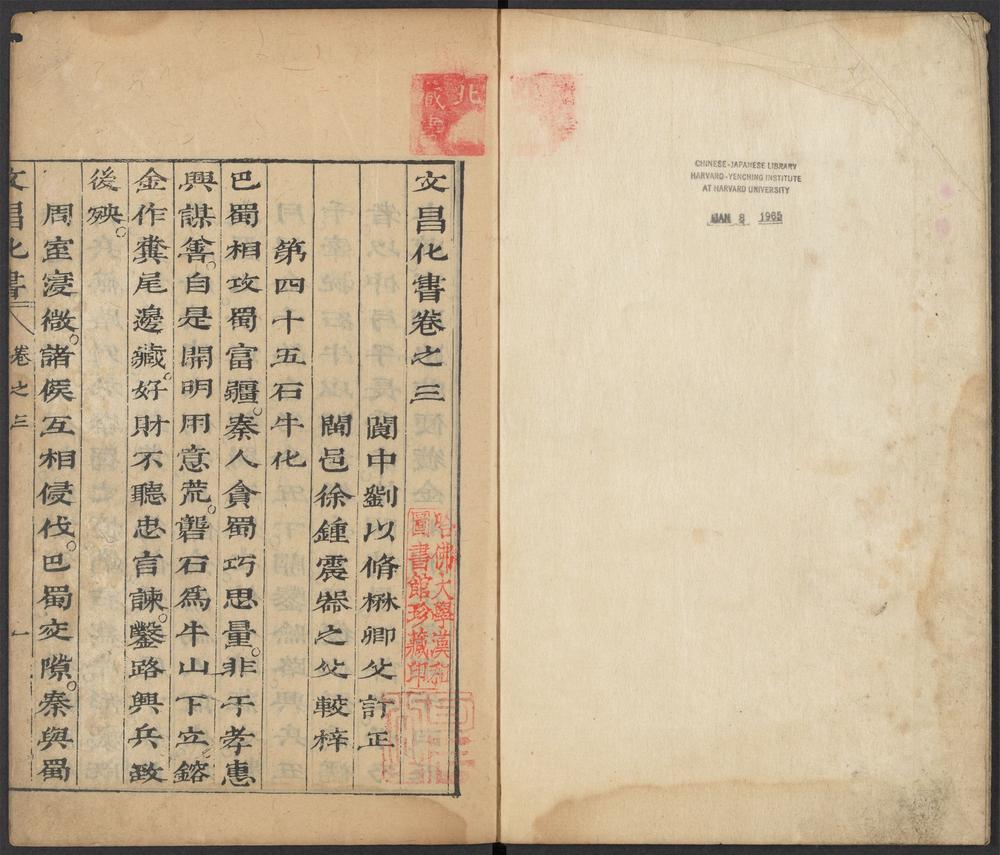 CHINESE-JAPANESE LIBRARY
HARVARD-YENCHING INSTITUTE
AT HARVARD UNIVERSITY
JAN 8 1965
北
藏書
哈佛大學漢和
圖書館珍藏印
文昌化書卷之三
閬中劉以脩楙卿父訂正
閬邑徐鍾震器之父較梓
第四十五石牛化
巴蜀相攻蜀富疆。秦人貪蜀巧思量。非干孝惠
興謀善。自是開明用意荒。礱石為牛山下立。鎔
金作糞尾邊藏。好財不聽忠言諫。鑿路興兵致
後殃。
周室寖微。諸侯互相侵伐。巴蜀交隙。秦與蜀
文昌化書 卷之三 一